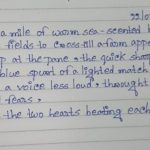 22/0
a mile of warm sea-scented b
fields to cross till a farm appe
p at the pane, the quick sharp
blue spurt of a lighted match
a voice less loud, throught
fears,
the two hearts beating each